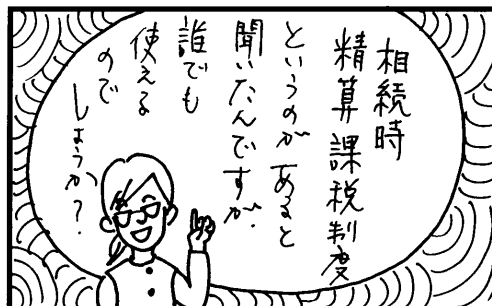 相続時
精算課税制度
というのがあると
聞いたんですが、
誰でも
使える
ので
しょうか？